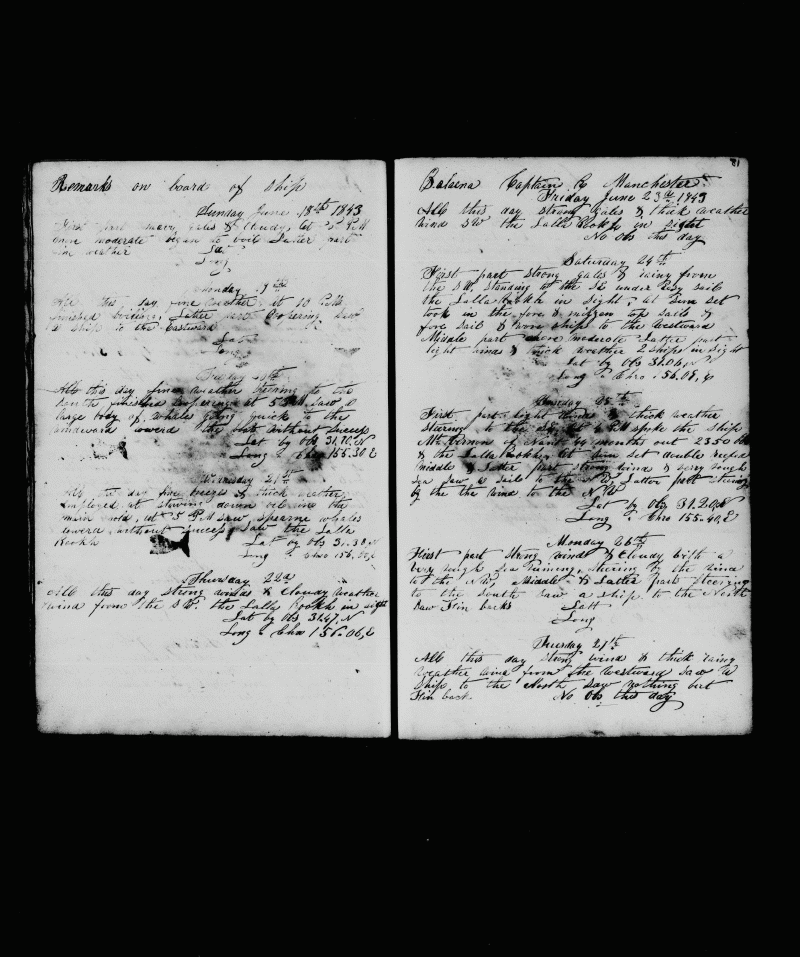 Remarks on board of Ship
Sunday June 18th 1843
First part heavy gales & Cloudy, at 5 PM
more moderate began to boil Latter part
weather Lat
Long
Monday 19th
All this day fine weather at 10 PM
finished boiling, Latter part Coopering Saw
a Ship to the Eastward
Lat
Long
20th
All this day fine weather Steering to the
South finished Coopering at 5 PM Saw a
large body of whales going quick to the
windward lowerd the boats without Success
Lat by Obs 31.70, N
Long " Chro 155.30 E
Wensday 21st
All the day fine breezes & thick weather
Employed at stowing down oil in the
main hold, at 5 PM saw spearme whales
lowerd without success, saw the Lalla
Rookh Lat by Obs 31.38, N
Long " Chro 156.00, E
Thursday 22d
All this day strong winds & Cloudy weather
wind from the SW. the Lalla Rookh in sight
Lat by Obs 31.47, N
Long " Chro 156.06, E
81
Balaena Captain R Manchester
Friday June 23d 1843
All this day strong gales & thick weather
wind SW the Lalla Rookh in sight
No Obs this day
Saturday 24th
First part strong gales & rainy from
the SW, standing to the SE under Easy sail
the Lalla Rookh in Sight, at Sun set
took in the fore & mizzen top sails &
fore sail & wore ship to the Westward
Middle part more moderate Latter part
light winds & thick weather 2 ships in sight
Lat by Obs 31.04, N
Long " Chro 156.08, E
Sunday 25th
First part light winds & thick weather
stering to the at 4 PM spoke the Ship
of Nant 44 months out 2350 bbls
& the Lalla Rookh, at Sun set double reefed
Middle & Latter part strong wind & very rough
Sea Saw 6 sails to the NW Latter part steering
by the the wind to the NW
Lat by Obs 31.20, N
Long " Chro 155.40, E
Monday 26th
First part Strong winds & Cloudy with a
very rough Sea Running, steering by the wind
to the NW, Middle & Latter part Steering
to the South Saw a ship to the North
Saw Fin backs Latt
Long
Tuesday 27th
All this day strong wind & thick rainy
weather wind from the Westward Saw a
Ship to the North Saw nothing but
Fin back No Obs this day